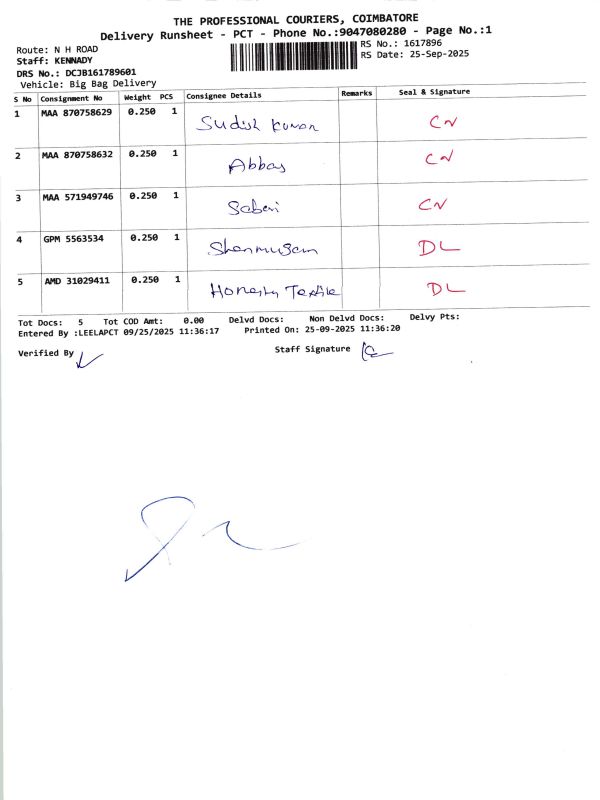 THE PROFESSIONAL COURIERS, COIMBATORE
Delivery Runsheet - PCT - Phone No.:9047080280 - Page No.:1
Route: N H ROAD RS No.: 1617896
Staff: KENNADY RS Date: 25-Sep-2025
DRS No.: DCJB161789601
Vehicle: Big Bag Delivery
S No Consignment No Weight PCS Consignee Details Remarks Seal & Signature
1 MAA 870758629 0.250 1 Sudish kumar CN
2 MAA 870758632 0.250 1 Abbas CN
3 MAA 571949746 0.250 1 Saberi CN
4 GPM 5563534 0.250 1 Shanmugam DL
5 AMD 31029411 0.250 1 Honesty Textile DL
Tot Docs: 5 Tot COD Amt: 0.00 Delvd Docs: Non Delvd Docs: Delvy Pts:
Entered By :LEELAPCT 09/25/2025 11:36:17 Printed On: 25-09-2025 11:36:20
Verified By Staff Signature